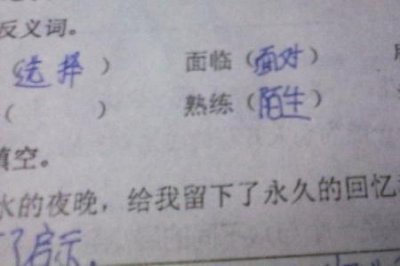 反义词。
(选择) 面临(面对)
( ) 熟练(陌生)
填空。
水的夜晚，给我留下了永久的回忆
了启示.